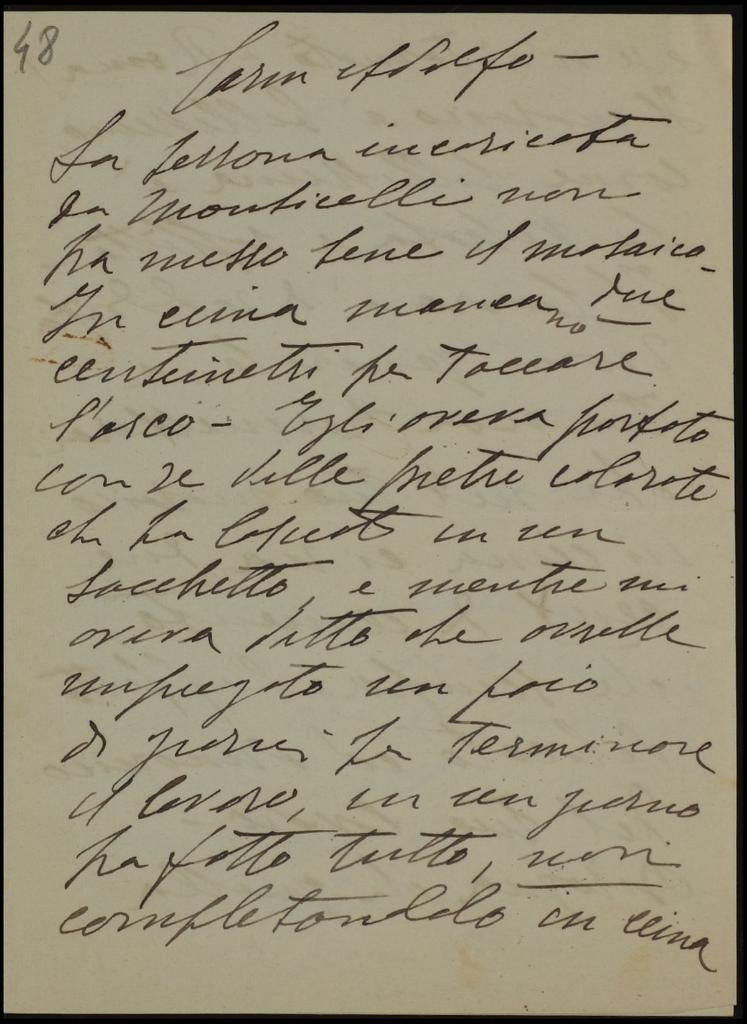 48
Caro Adolfo —
La persona incaricata
da Monticelli non
ha messo bene il mosaico -
In cima mancano due
centimetri per toccare
l'arco - Egli aveva portato
con se delle pietre colorate
che ha lasciato in un
sacchetto, e mentre mi
aveva detto che avrebbe
impiegato un paio
di giorni per terminare
il lavoro, in un giorno
ha fatto tutto, non
completandolo in cima